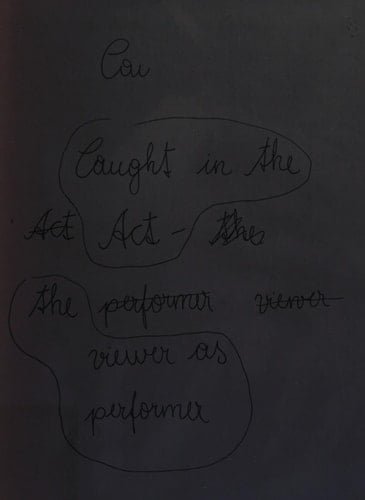 Cau
Caught in the
Act Act - the
the performer viewer
viewer as
performer